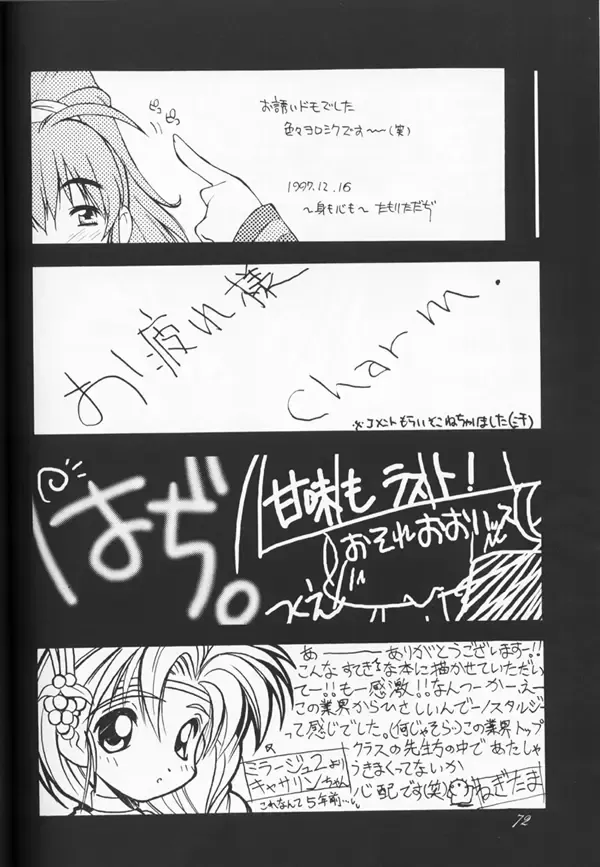 ピっ ピっ
お誘いドモでした
色々ヨロシクです〜(笑)
1997.12.16
〜身も心も〜 たもりただぢ
お疲れ様
Charm.
はぢ。
甘味も ラスト!
おそれおおいッス
あ――ありがとうございますー!!
こんな すてきな本に描かせていただい
てー!!もー感激!!なんつーかーえー
この業界からひさしいんでーノスタルジ
って感じでした。(何じゃそら)この業界トップ
クラスの先生方の中であたしゃ
うきまくってないか
心配です(笑) ねぎたま
ミラージュ2より
キャサリンちゃん
これなんて5年前…。
72